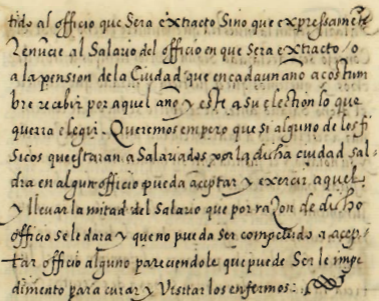 tido al officio que sera extracto sino que expressamẽte
Renuncie al salario del officio en que sera extracto / o
a la pension de la Ciudad que en cada un año acostum
bre recebir por aquel año y este a su election lo que
querra elegir. Queremos empero que si alguno de los fi
sicos que estaran asalariados por la dicha ciudad sal
dra en algun officio pueda aceptar y exercir aquel
y llevar la mitad del salario que por razon de dicho
officio se le dara y que no pueda ser compelido a acep-
tar officio alguno pareciendole que puede serle impe
dimento para curar y visitar los enfermos: